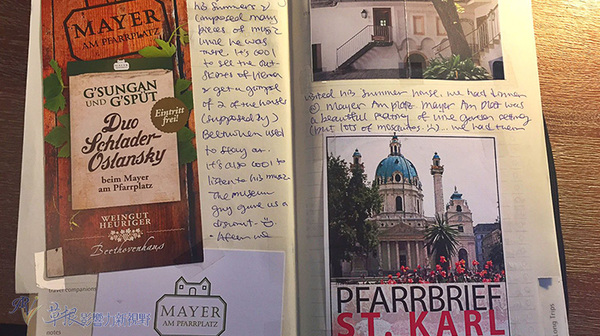 MAYER
AM PFARRPLATZ
G'SUNGAN
UND G'SPÜT
Eintritt
frei!
Duo
Schlader-
Ostansky
beim Mayer
am Pfarrplatz
WEINGUT
HEURIGER
Beethovenhaus
his summers &
composed many
pieces of music
while he was
there. It's cool
to see the out-
& get a glimpse
of 2 of the houses
(supposedly)
Beethoven used
to stay in.
It's also cool to
listen to his music
The museum
guy gave us a
discount. :)
visited his summer house, we had dinner
@ Mayer Am platz. Mayer Am Platz was
a beautiful
(but lots of mosquitos :() ... we had them
MAYER
AM PFARRPLATZ
PFARRBRIEF
ST. KARL
travel companions
notes
Long Trips
新視野